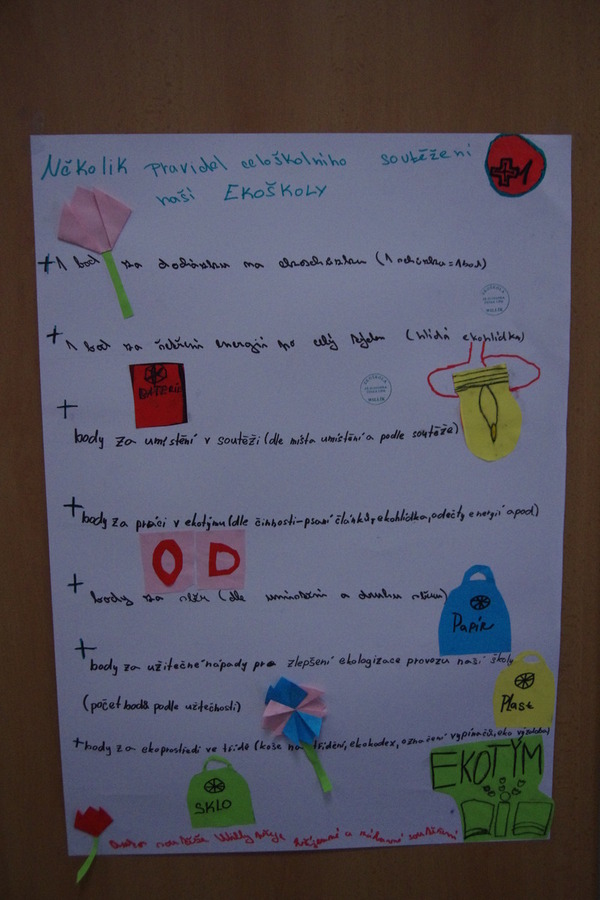 Několik pravidel celoškolního soutěžení
naší EKOŠKOLY
+1
+1 bod za docházku na ekoschůzku (1 schůzka=1bod)
+1 bod za šetření energií po celý týden (hlídá ekohlídka)
BATERIE
+ body za umístění v soutěži (dle místa umístění a podle soutěže)
+ body za práci v ekotýmu (dle činnosti-psaní článků, ekohlídka, odečty energií apod)
O D
+ body za (dle umístění a druhu)
Papír
+ body za užitečné nápady pro zlepšení ekologizace provozu naší školy
(počet bodů podle užitečnosti)
Plast
+body za ekoprostředí ve třídě (koše na třídění, ekokodex, označení vypínačů, eko výzdoba)
EKOTÝM
SKLO